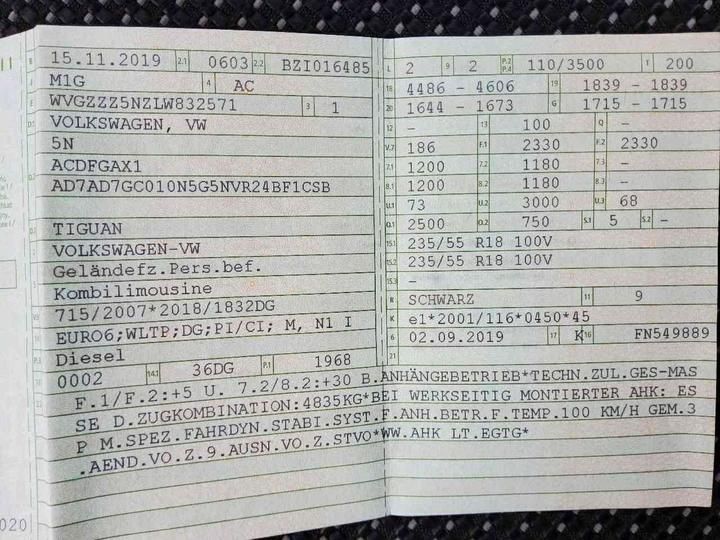 B 15.11.2019 2.1 0603 2.2 BZI016485
J M1G 4 AC
E WVGZZZ5NZLW832571 3 1
D.1 VOLKSWAGEN, VW
5N
ACDFGAX1
D.2 AD7AD7GC010N5G5NVR24BF1CSB
D.3 TIGUAN
2 VOLKSWAGEN-VW
5 Geländefz.Pers.bef.
Kombilimousine
V.9 715/2007*2018/1832DG
14 EURO6;WLTP;DG;PI/CI; M, N1 I
P.3 Diesel
10 0002 14.1 36DG P.1 1968
L 2 9 2 P.2 P.4 110/3500 T 200
18 4486 - 4606 19 1839 - 1839
20 1644 - 1673 G 1715 - 1715
12 - 13 100 Q -
V.7 186 F.1 2330 F.2 2330
7.1 1200 7.2 1180 7.3 -
8.1 1200 8.2 1180 8.3 -
U.1 73 U.2 3000 U.3 68
O.1 2500 O.2 750 S.1 5 S.2 -
15.1 235/55 R18 100V
15.2 235/55 R18 100V
15.3 -
R SCHWARZ 11 9
K e1*2001/116*0450*45
6 02.09.2019 17 K 16 FN549889
21
22 F.1/F.2:+5 U. 7.2/8.2:+30 B.ANHÄNGEBETRIEB*TECHN.ZUL.GES-MAS
SE D.ZUGKOMBINATION:4835KG*BEI WERKSEITIG MONTIERTER AHK: ES
P M.SPEZ.FAHRDYN.STABI.SYST.F.ANH.BETR.F.TEMP.100 KM/H GEM.3
.AEND.VO.Z.9.AUSN.VO.Z.STVO*WW.AHK LT.EGTG*
020